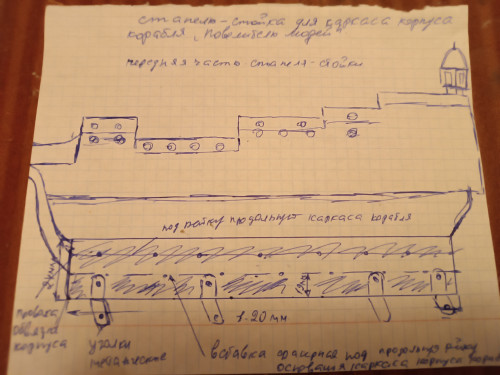 стапель-стойка для каркаса корпуса
корабля "Повелитель морей"
передняя часть стапеля-стойки
под рейку продольную каркаса корабля
уголки
металические
1-20 мм
вставка фанерная под продольную рейку
основания каркаса корпуса